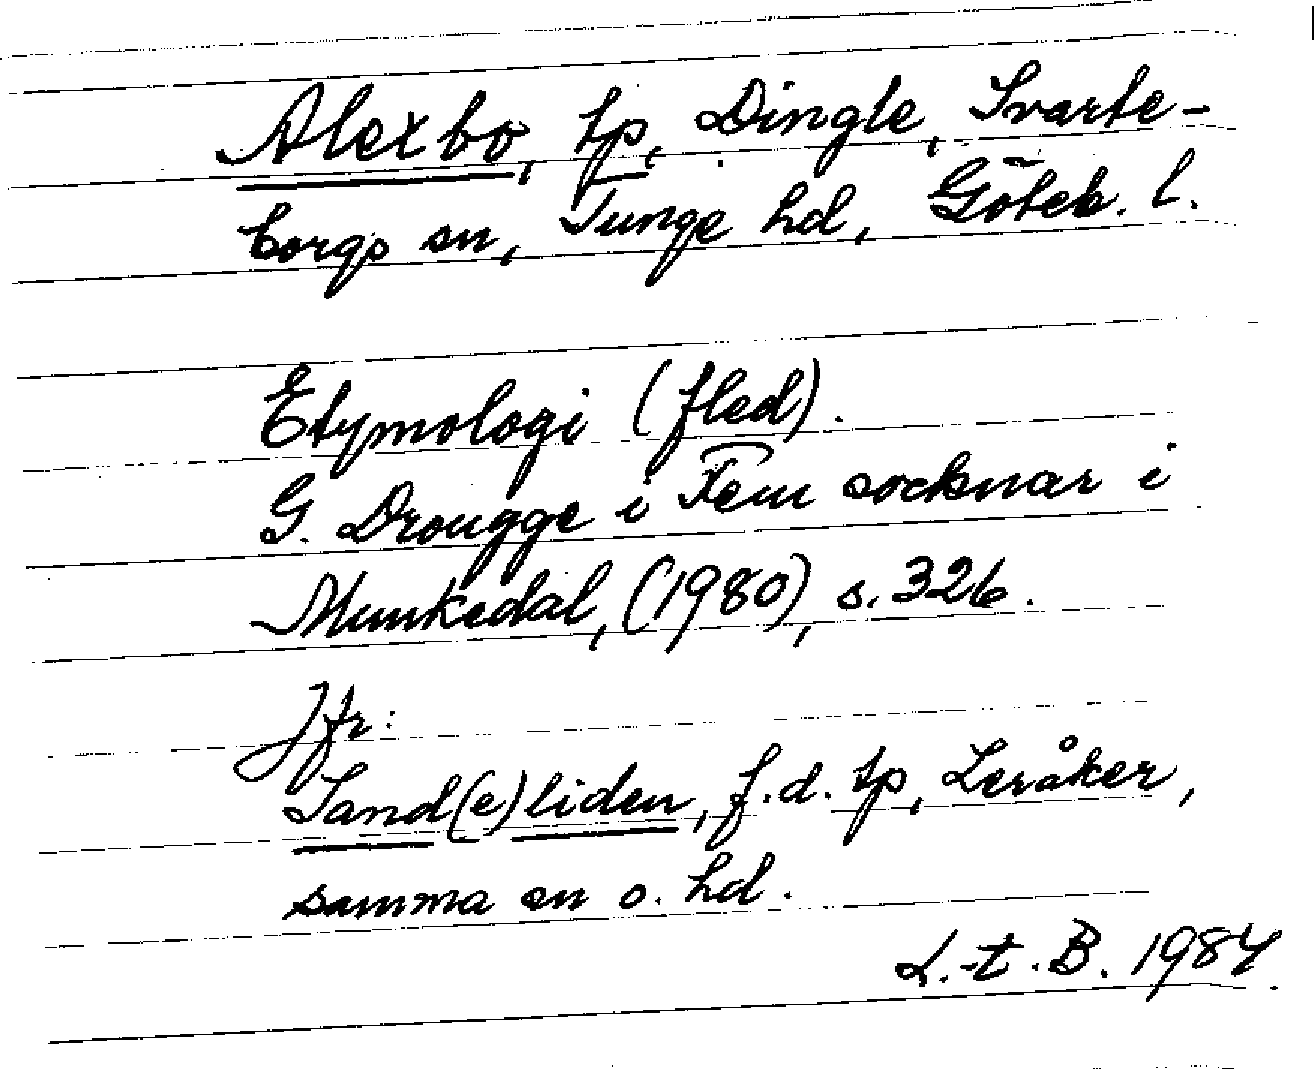 Alexbo, tp, Dingle, Svarte-
borgs sn, Tunge hd, Göteb. l.
Etymologi (fled).
G. Drougge i Fem socknar i
Munkedal, (1980), s. 326.
Jfr:
Sand(e)liden, f.d. tp, Leråker,
samma sn o. hd.
L.-t. B. 1984